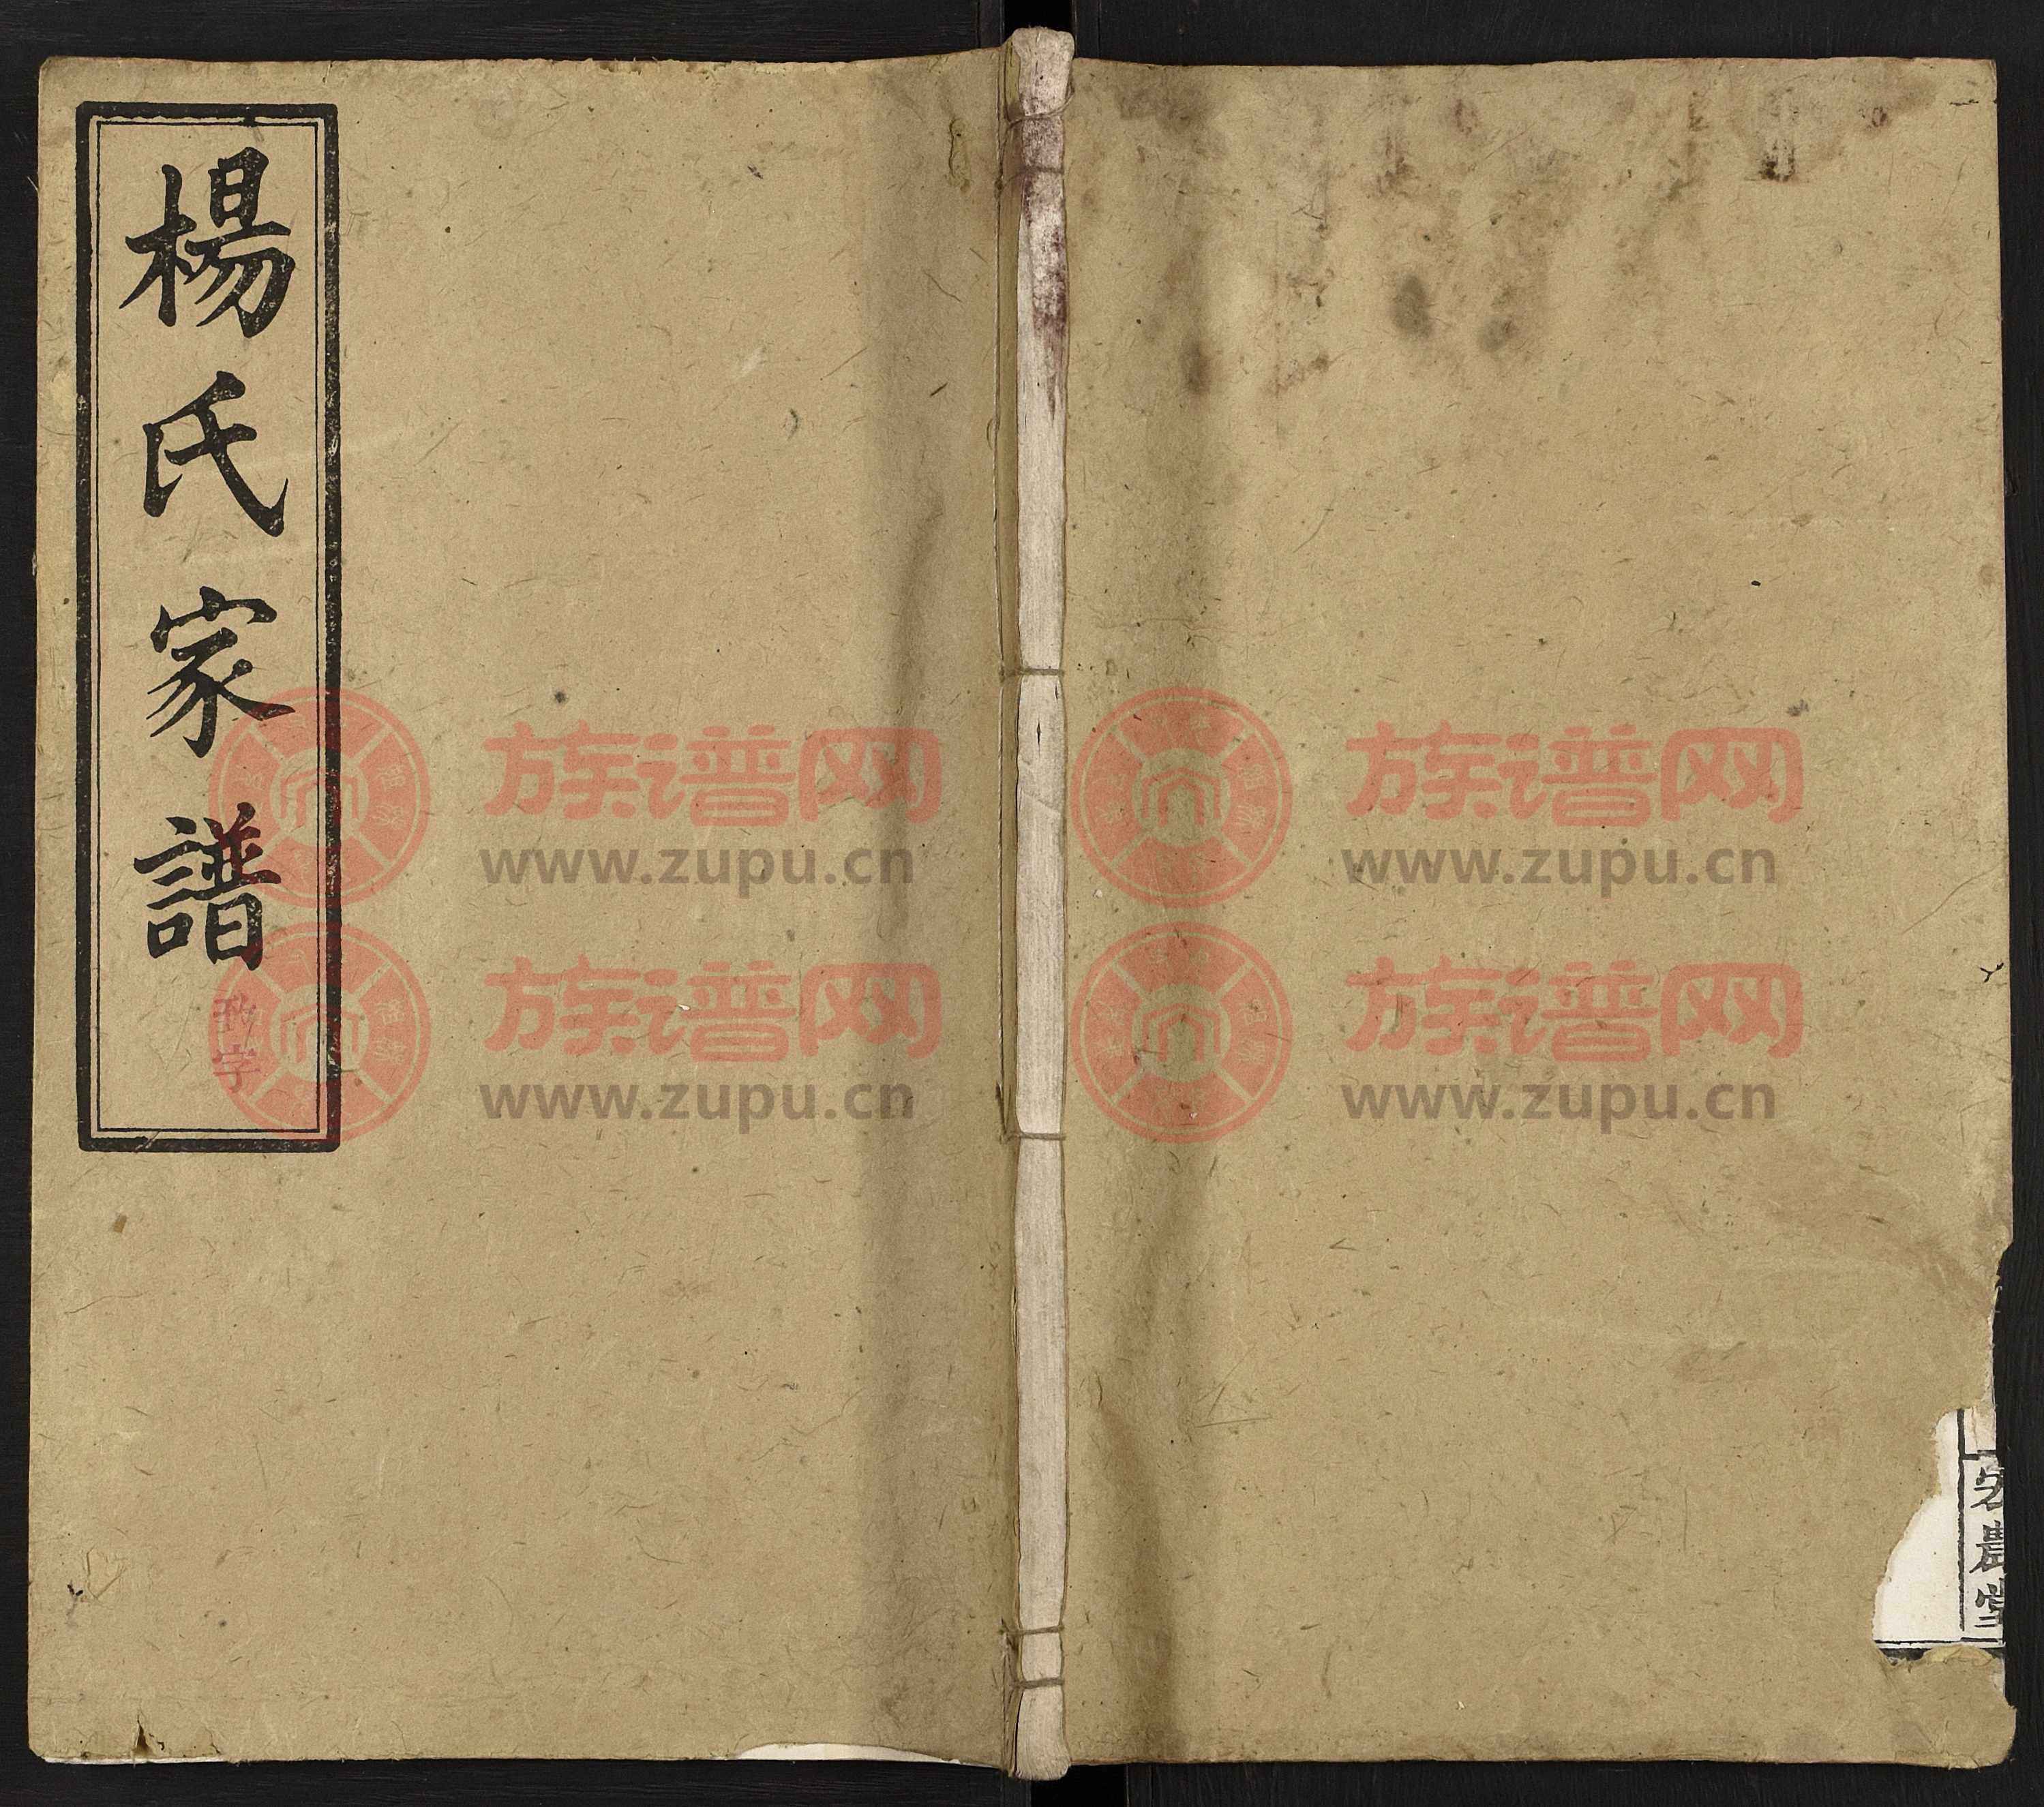 楊氏家譜
字
族谱网
www.zupu.cn
族谱网
www.zupu.cn
族谱网
www.zupu.cn
族谱网
www.zupu.cn
農堂